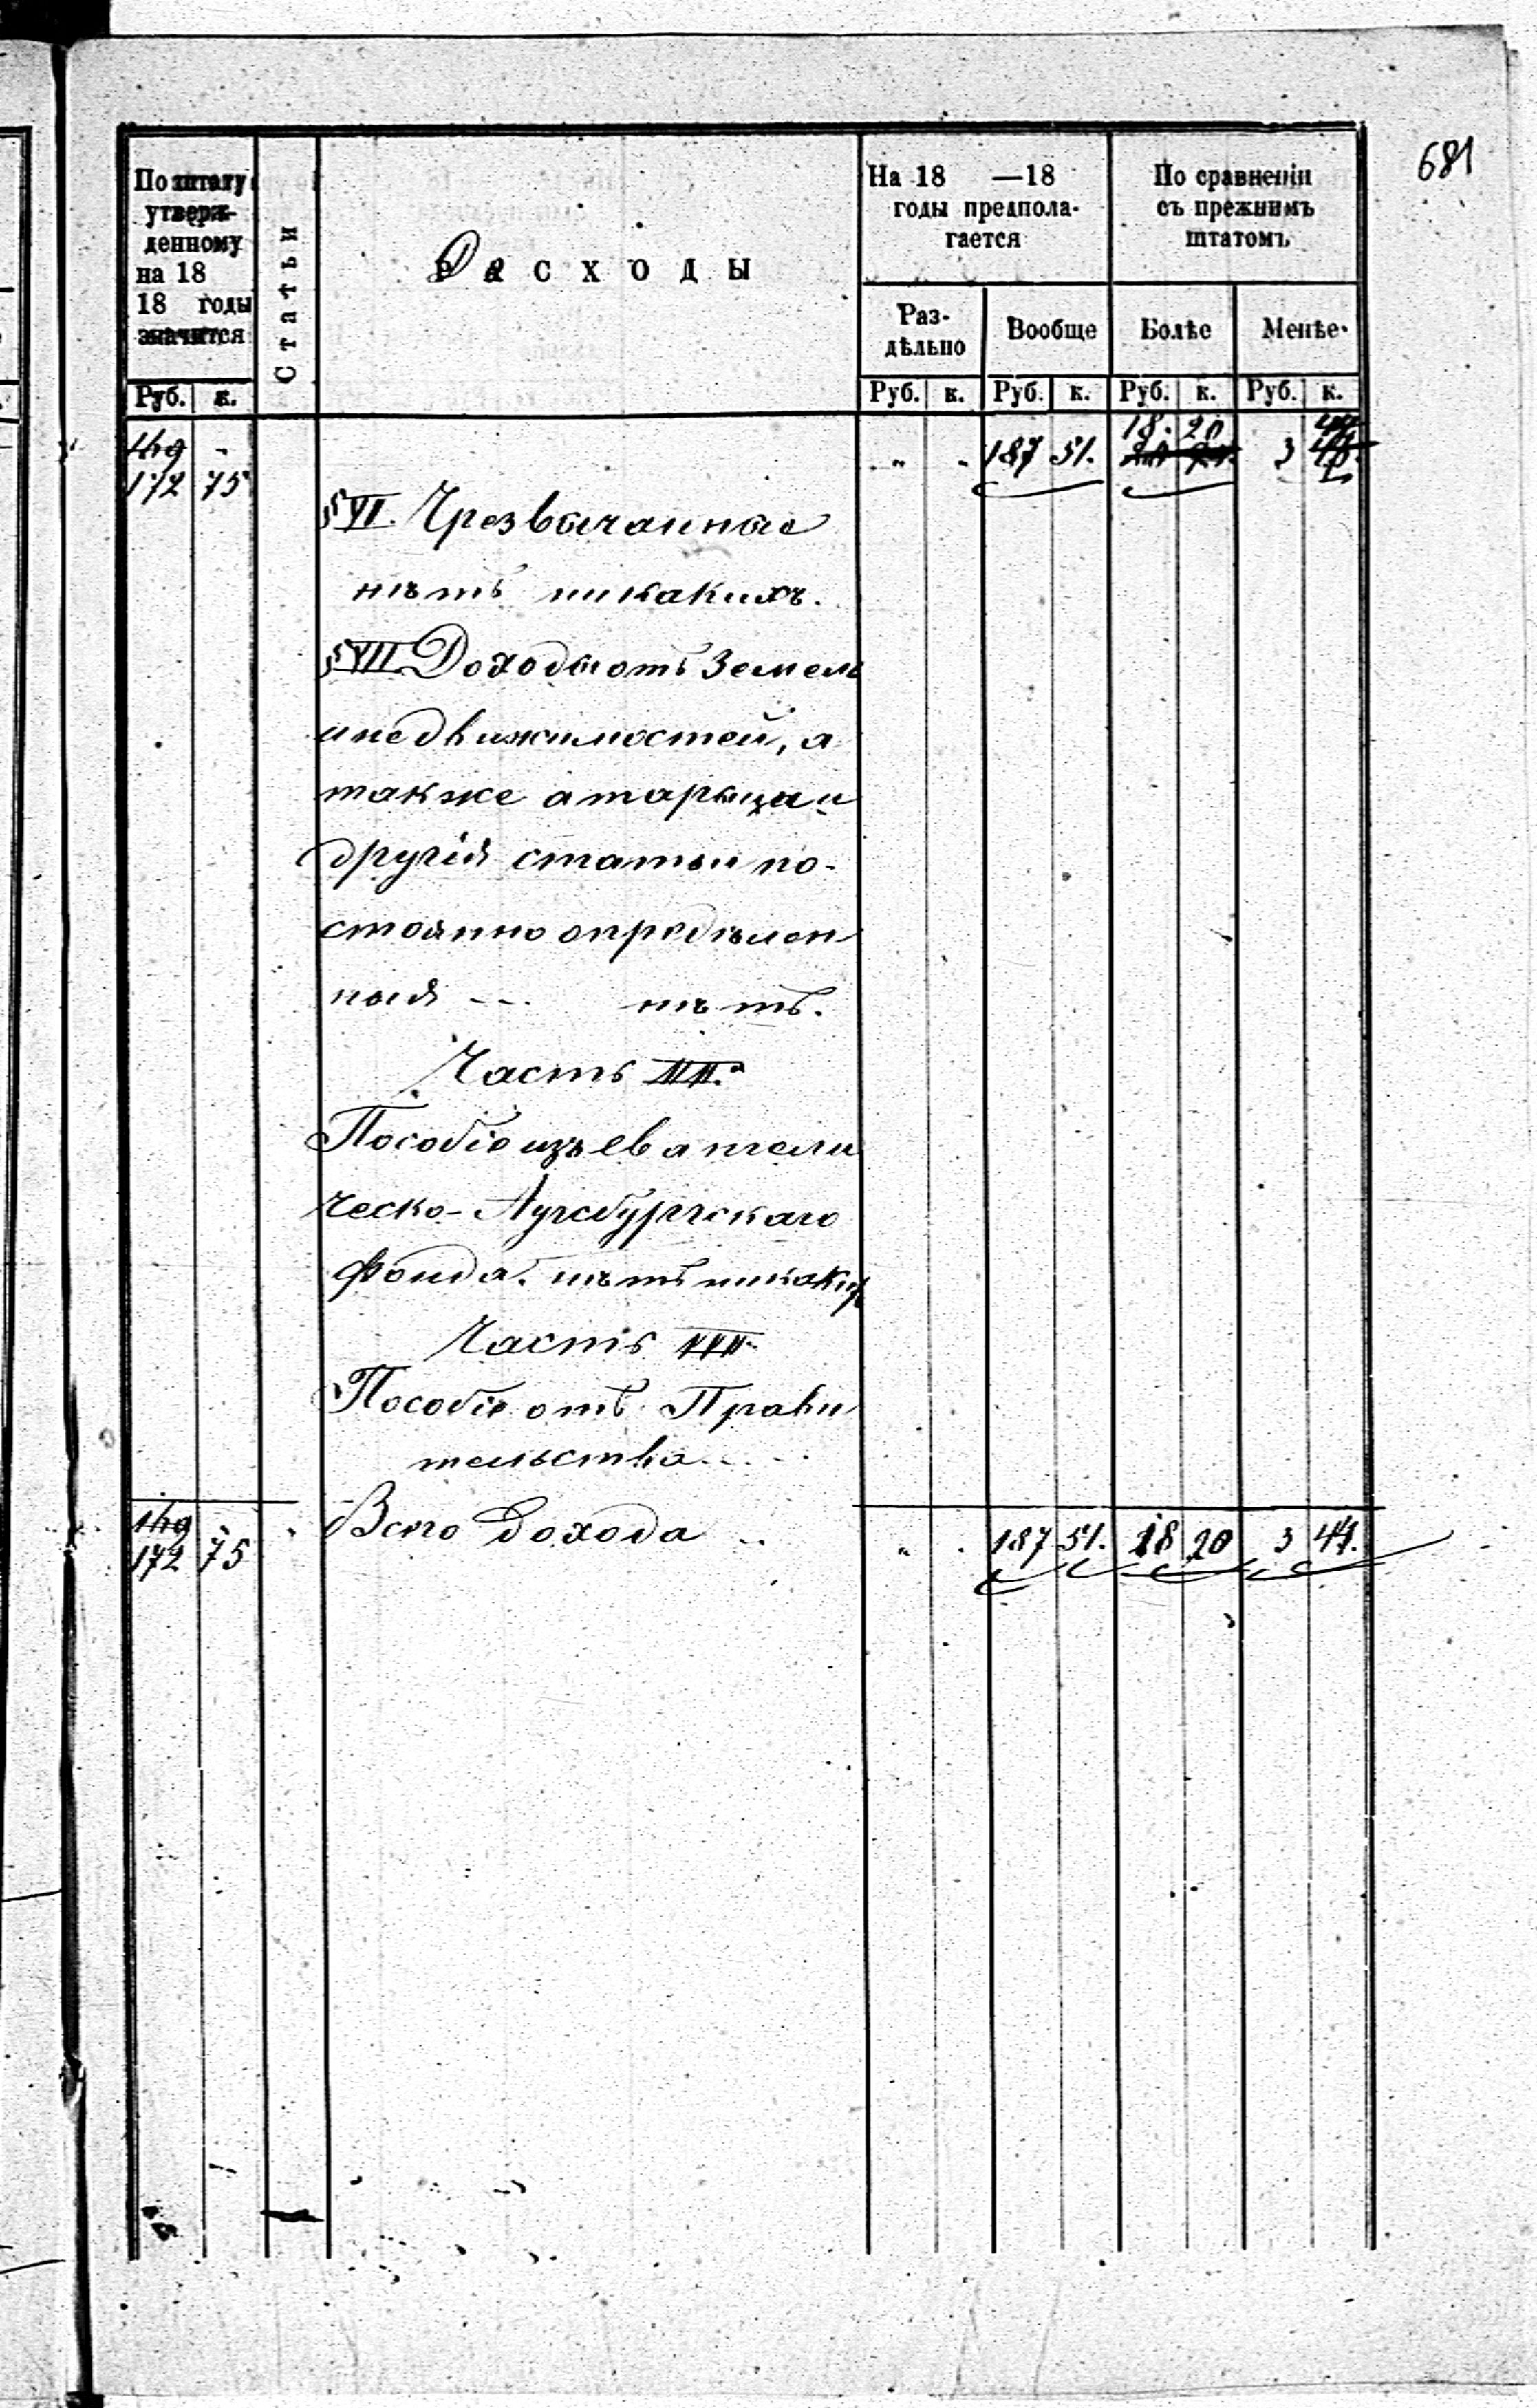 681
По штату
утверж-
денному
на 18
18 годы
значится
Статьи
Расходы
На 18 —18
годы предпола-
гается
По сравненіи
съ прежнимъ
штатомъ
Раз-
дѣльно
Вообще
Болѣе
Менѣе
Руб. к.
Руб. к. Руб. к. Руб. к. Руб. к.
18. 20
169 - „ „ 187 51. 3
172 75
§ VI. Чрезвычайные
нѣтъ никакихъ.
§ VII Доходы отъ земель
и недвижимостей, а
также аптарища и
другія статьи по-
стоянно опредѣлен
ныя --- нѣтъ.
Часть II.
Пособіе изъ евангели
ческо-Аугсбургскаго
фонда. нѣтъ никаких
Часть III
Пособіе отъ Прави
тельства...
169 - Всего дохода .. „ . 187 51. 18 20 3 44.
172 75